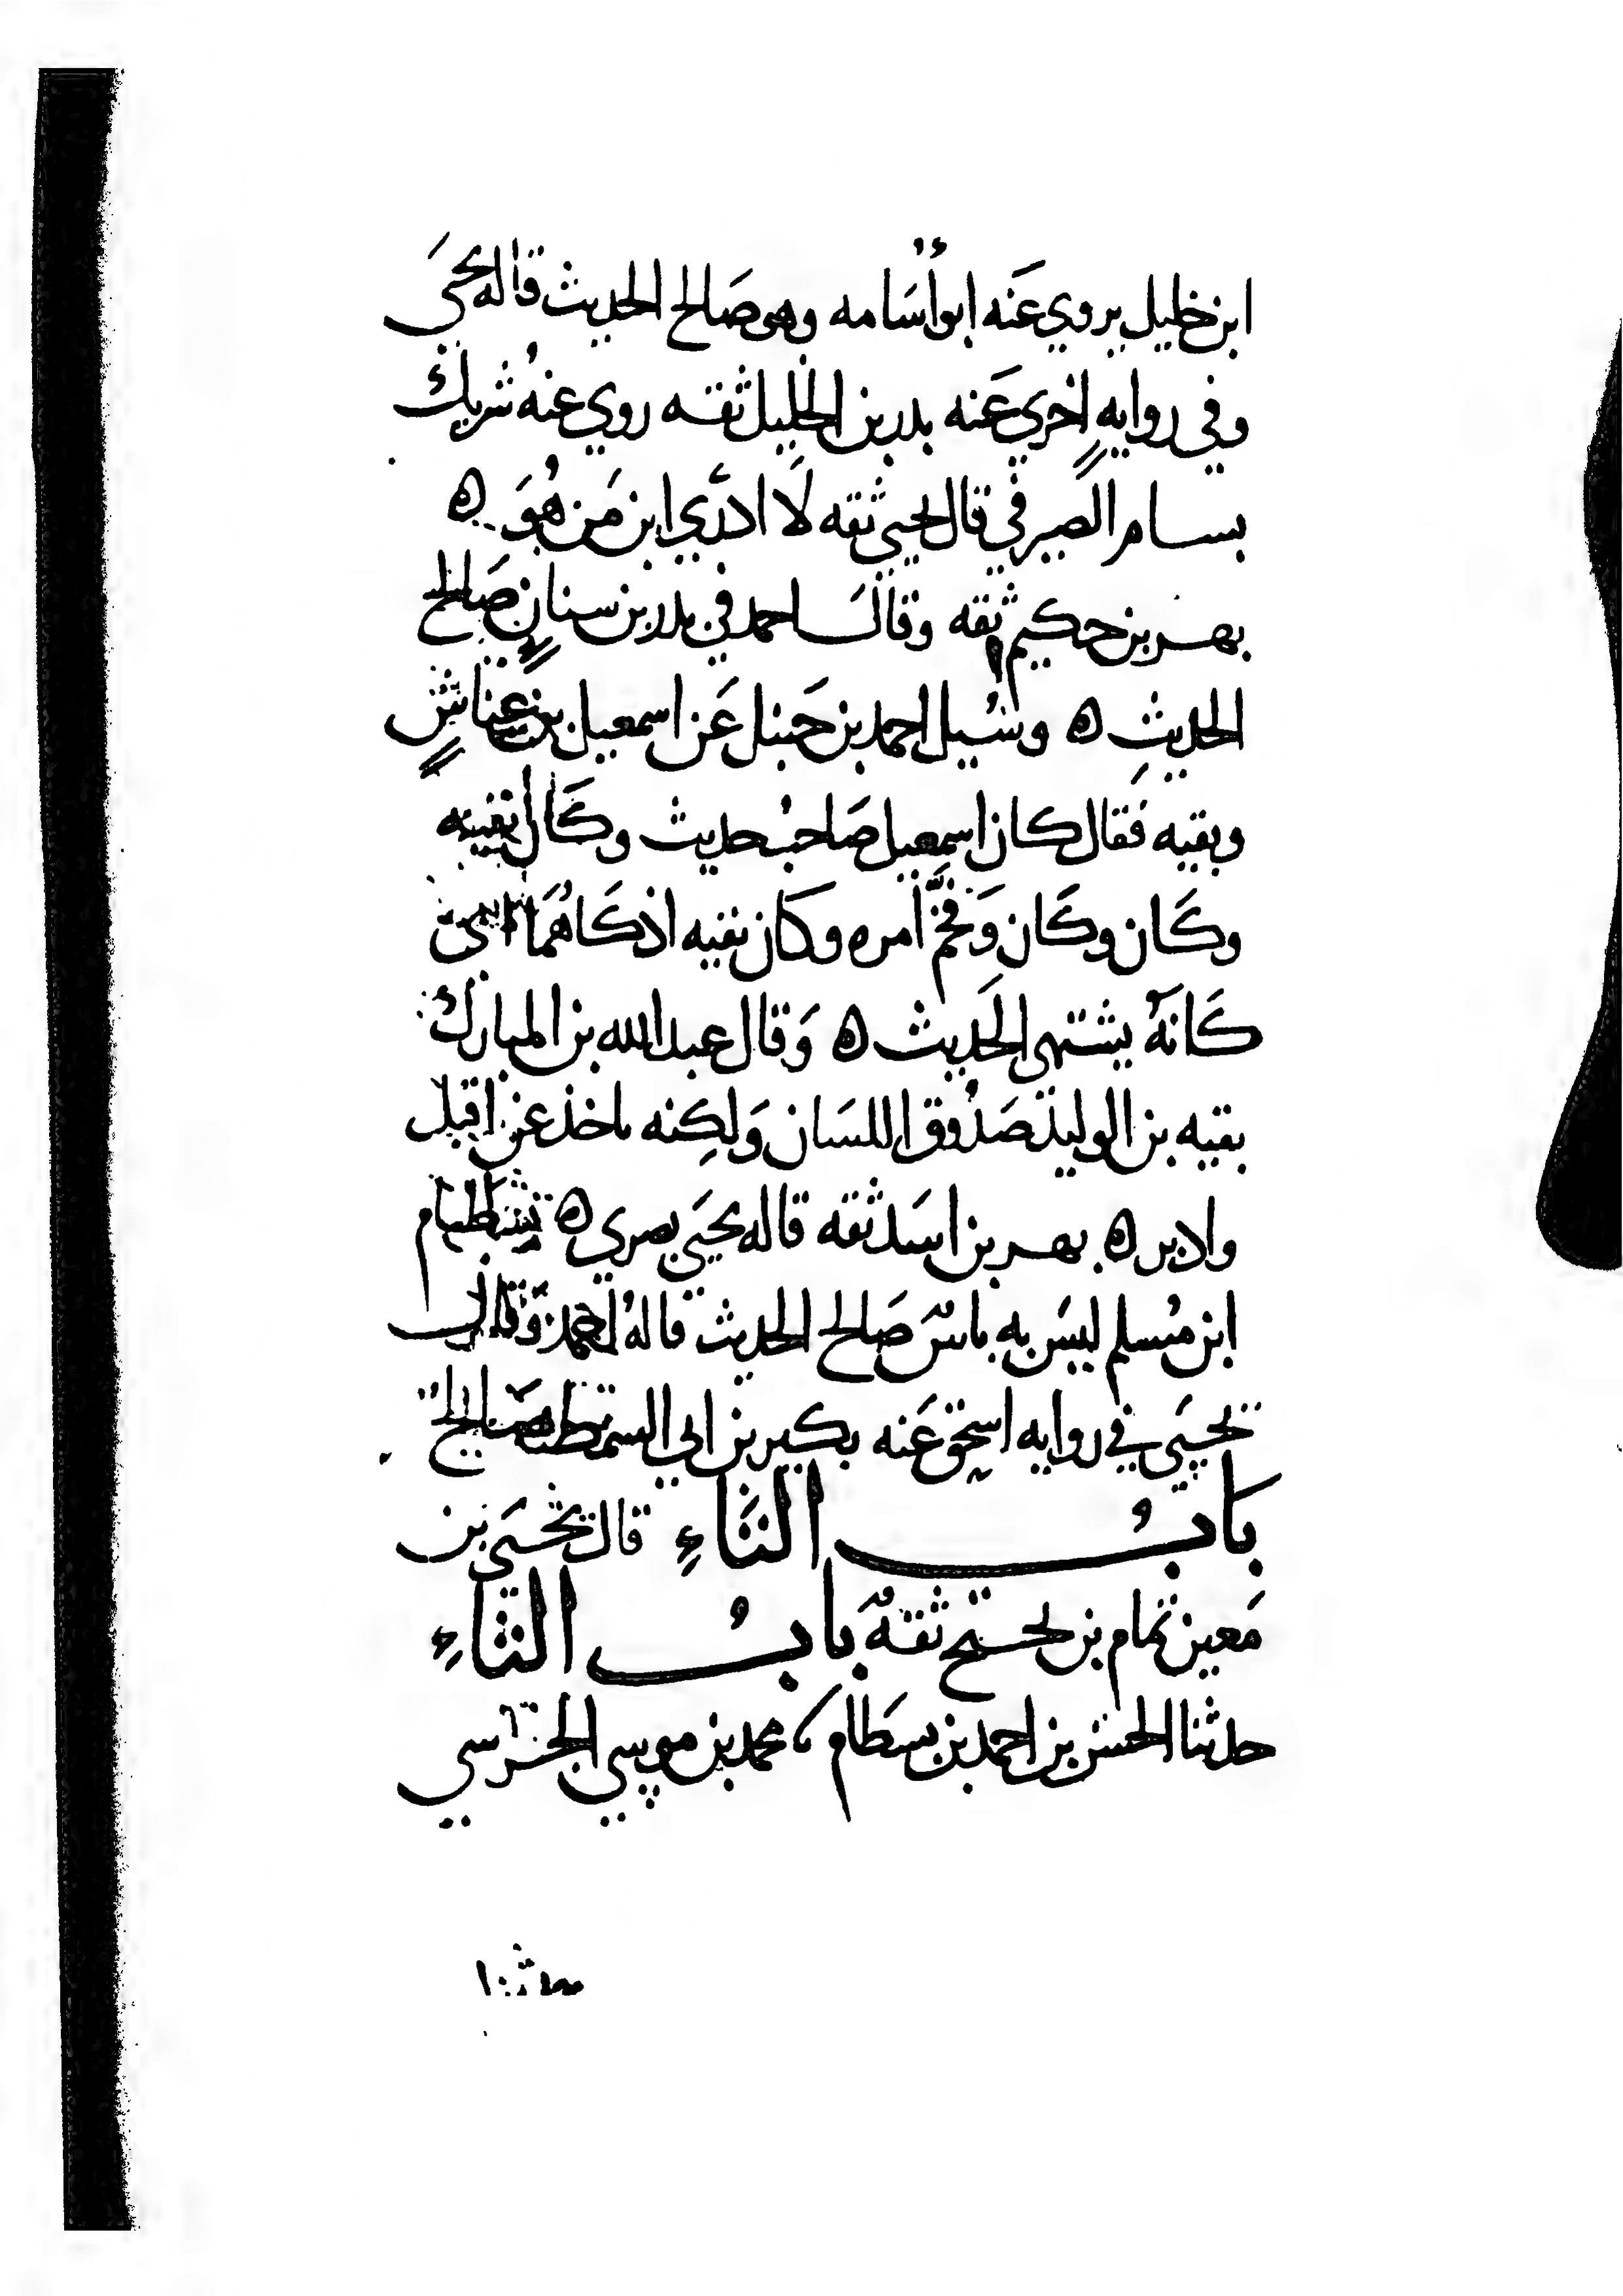 ابن خليل يروي عنه ابو أُسَامه وهو صَالح الحديث قاله يحيَى
وفي روايهٍ اخري عَنه بدر بن الخليل ثقه روي عنهُ شريك
بسام الصيرفي قال يحيي ثقه لَا ادرَي ابن مَن هُوَ ه
بهز بن حكيم ثقه وقال احمد في بدر بن سنانٍ صَالح
الحديثِ ه وسُيل احمد بن حَنبل عَن اسمعيل بن عياشٍ
وبقيه فقال كان اسمعيل صَاحبُ حديث وكَان بقيه
وكَان وكَان وَفخَّم أمره وكان بقيه اذكَاهُمَا
كَانهُ يشتهي الحَديث ه وَقال عبد الله بن المبارك
بقيه بن الوليد صَدُوق اللسَان وَلكِنه ياخذ عن اقبل
وادبر ه بهز بن اسَد ثقه قاله يحيَي بصري ه بسطام
ابن مُسلم ليسَ به باسٌ صَالح الحديث قالهُ احمد وَقال
يحيَي في روايه اسحق عَنه بكير بن ابي السمط صَالح
بَابُ التَاءِ قال يحيَي بن
مَعين تمام بن نجيح ثقهٌ بابُ الثاءِ
حدثنا الحسَن بن احمد بن بسطَام محمد بن موسي الحرَسي